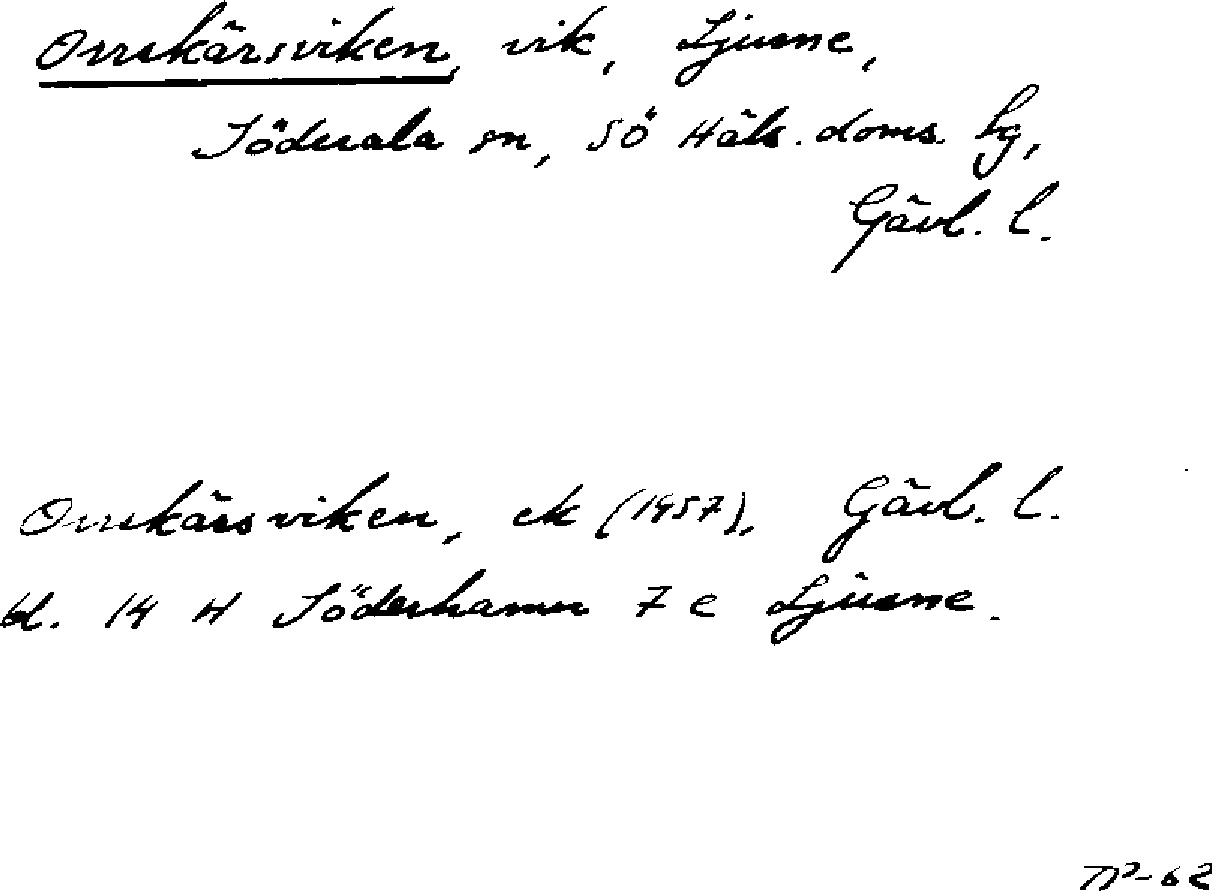 Orrekärsviken, vik, Ljusne,
Söderala sn, Sö Häls. doms. hg,
Gävl. l.
Orrekärsviken, ek (1957), Gävl. l.
bl. 14 H Söderhamn 7 c Ljusne.
-62